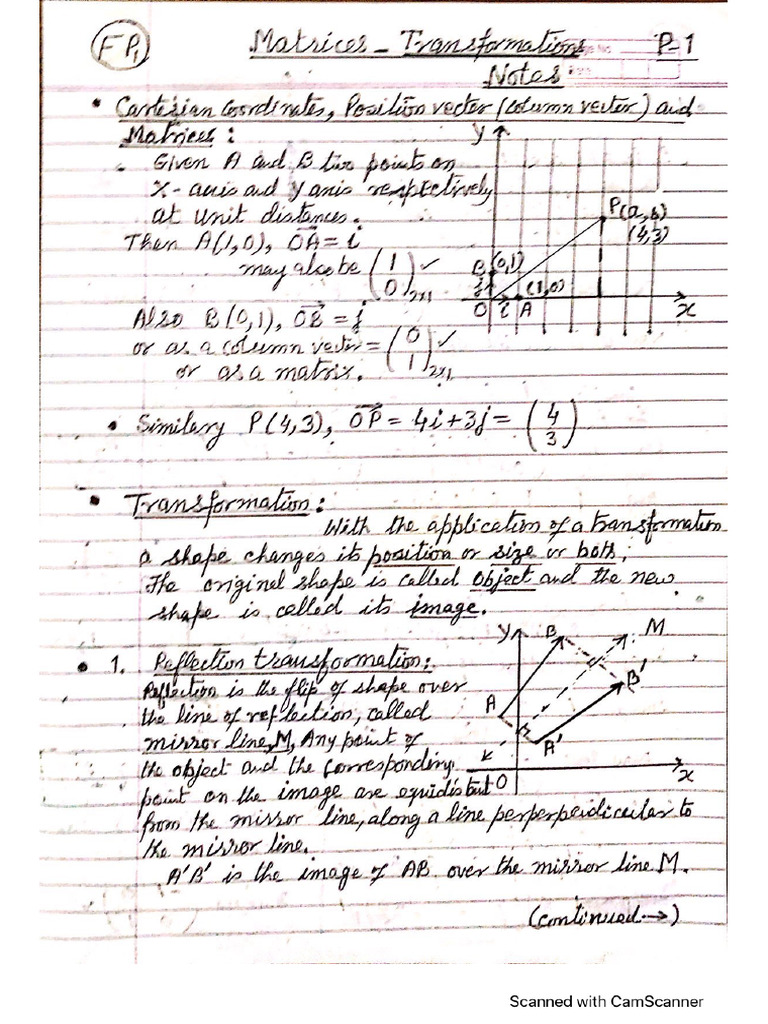 FP1 Matrices - Transformations P-1
Notes
• Cartesian Coordinates, Position vector (column vector) and
Matrices:
Given A and B two points on
X-axis and Y axis respectively
at Unit distances.
Then A(1,0), OA = i
may also be (1 0)2x1 ✓
Also B(0,1), OB = j
or as a column vector = (0 1)2x1 ✓
or as a matrix.
y
P(a,b)
(4,3)
B (0,1)
j
(1,0)
O i A x
• Similary P(4,3), OP = 4i+3j = (4 3)
• Transformation:
With the application of a transformation
a shape changes its position or size or both;
The original shape is called Object and the new
shape is called its image.
• 1. Reflection transformation:
Reflection is the flip of shape over
the line of reflection, called
mirror line, M, Any point of
the object and the corresponding
point on the image are equidistant
from the mirror line, along a line perperpendicular to
the mirror line.
A'B' is the image of AB over the mirror line M.
y B M
B'
A
A'
O x
(continued→)
Scanned with CamScanner